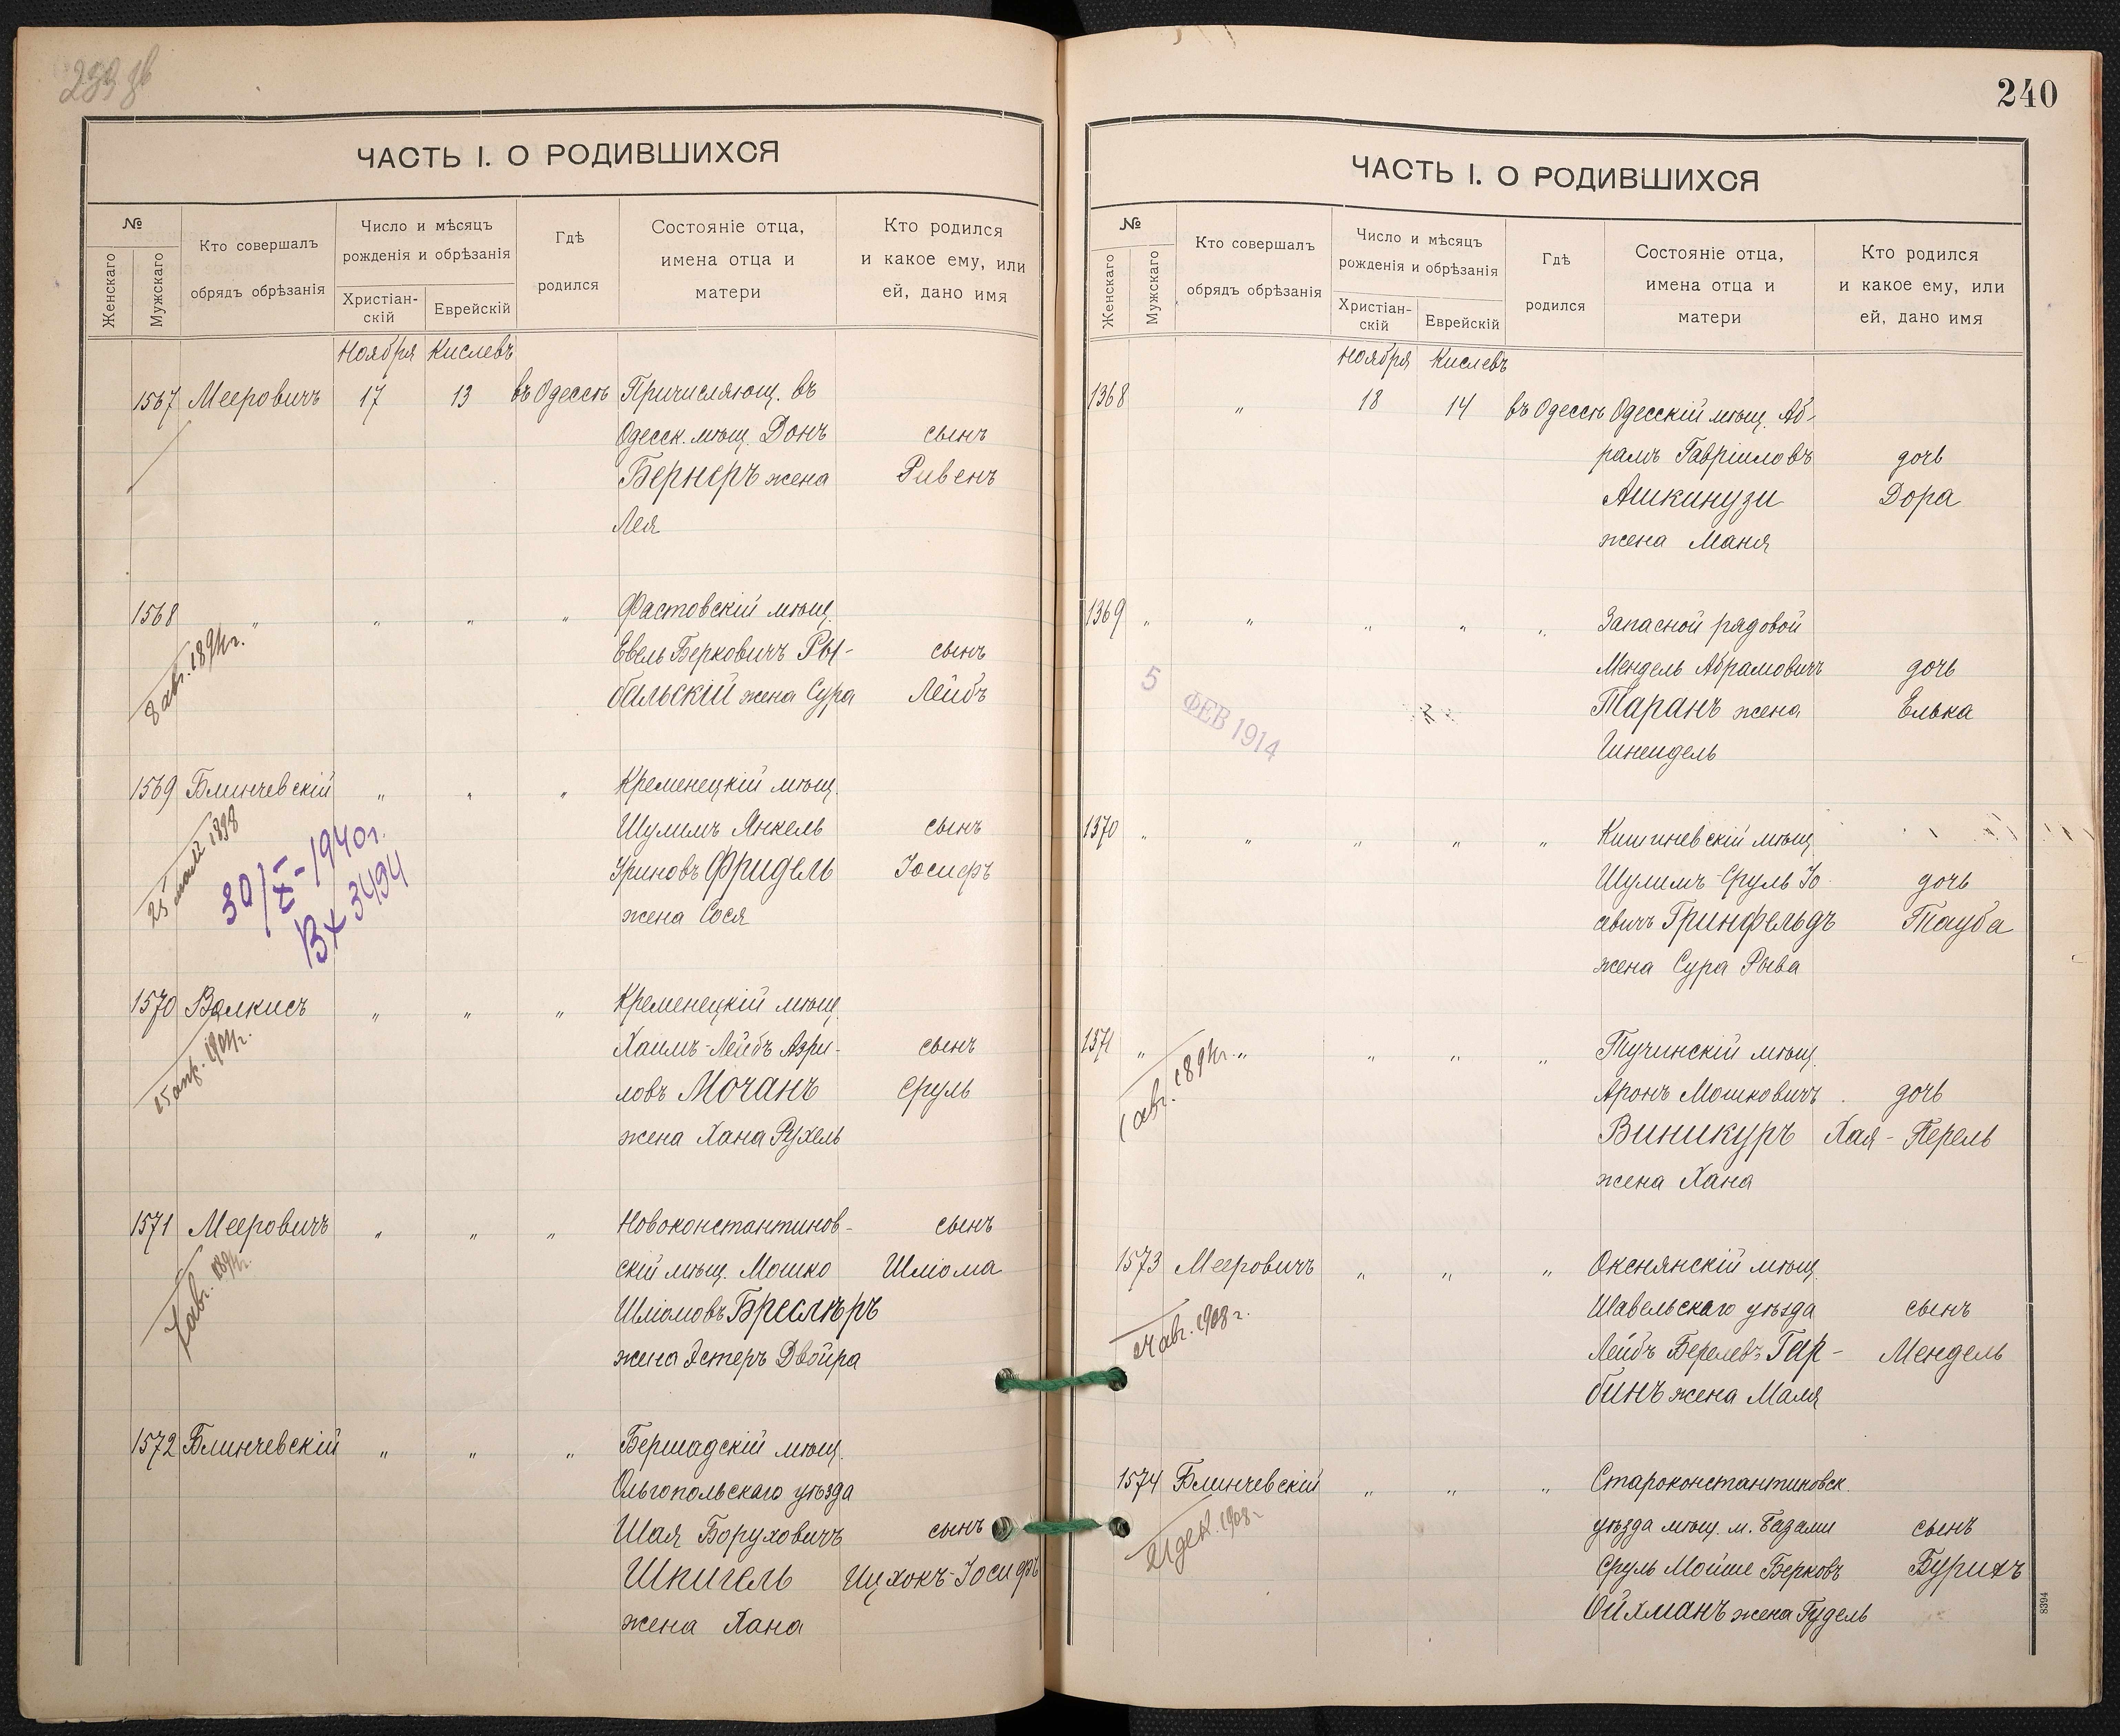 239 об
ЧАСТЬ I. О РОДИВШИХСЯ
№
Женскаго
Мужскаго
Кто совершалъ
обрядъ обрѣзанія
Число и мѣсяцъ
рожденія и обрѣзанія
Христіан-
скій
Еврейскій
Гдѣ
родился
Состояніе отца,
имена отца и
матери
Кто родился
и какое ему, или
ей, дано имя
Ноября Кислевъ
1567 Мееровичъ 17 13 въ Одессѣ Причисляющ. въ
Одесск. мѣщ. Донъ сынъ
Бернеръ жена Ривенъ
Лея
1568 " " " " Фастовскій мѣщ.
8 авг. 1894 г.
Евель Берковичъ Ры- сынъ
бальскій жена Сура Лейбъ
1569 Блинчевскій " " " Кременецкій мѣщ.
25 1898
Шулимъ Янкель сынъ
Уриновъ Фридель Іосифъ
жена Сося
30/X-1940г.
Вх 3494
1570 Валкисъ " " " Кременецкій мѣщ.
15 апр. 1904 г.
Хаимъ-Лейбъ Азри- сынъ
ловъ Мочанъ Сруль
жена Хана Рухель
1571 Мееровичъ " " " Новоконстантинов- сынъ
7 авг. 1894 г.
скій мѣщ. Мошко Шліома
Шліомовъ Бреслѣръ
жена Эстеръ Двойра
1572 Блинчевскій " " " Бершадскій мѣщ.
Ольгопольскаго уѣзда
Шая Боруховичъ сынъ
Шпигель Ицхокъ-Іосифъ
жена Хана
240
ЧАСТЬ I. О РОДИВШИХСЯ
№
Женскаго
Мужскаго
Кто совершалъ
обрядъ обрѣзанія
Число и мѣсяцъ
рожденія и обрѣзанія
Христіан-
скій
Еврейскій
Гдѣ
родился
Состояніе отца,
имена отца и
матери
Кто родился
и какое ему, или
ей, дано имя
Ноября Кислевъ
1368 " 18 14 въ Одессѣ Одесскій мѣщ. Аб-
рамъ Гавріиловъ дочь
Ашкинузи Дора
жена Маня
1369 " " " " " Запасной рядовой
Мендель Абрамовичъ дочь
5 ФЕВ 1914
Таранъ жена Елька
Шнейдель
1370 " " " " " Кишиневскій мѣщ.
Шулимъ-Сруль Іо- дочь
сивичъ Гринфельдъ Тауба
жена Сура Рыва
1371 " " " " " Тучинскій мѣщ.
1 авг. 1894 г.
Аронъ Мошковичъ дочь
Виникуръ Хая-Перель
жена Хана
1573 Мееровичъ " " " Окснянскій мѣщ.
Шавельскаго уѣзда сынъ
24 авг. 1908 г.
Лейбъ Берелевъ Гар- Мендель
бинъ жена Маля
1574 Блинчевскій " " " Староконстантиновск.
21 дек. 1908 г.
уѣзда мѣщ. м. Базали сынъ
Сруль Мойше Берковъ Бурихъ
Ойхманъ жена Гудель
8394